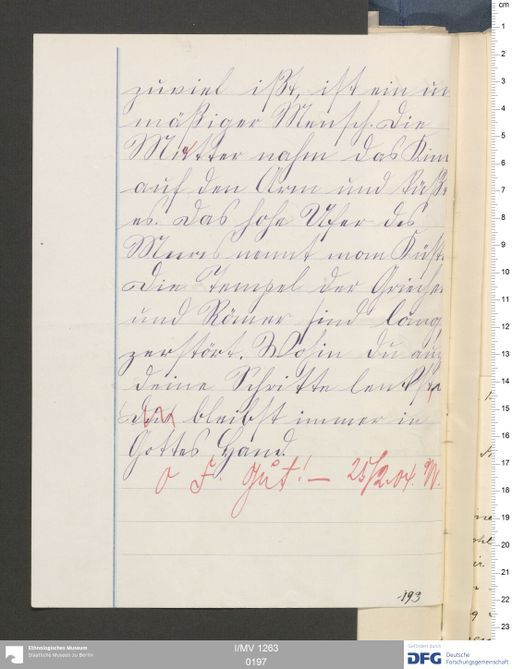 zuviel ißt, ist ein un
mäßiger Mensch. Die
Mutter nahm das Kin
auf den Arm und küßt
es. Das hohe Ufer des
Meeres nennt man Küste
Die Tempel der Grieche
und Römer sind läng
zerstört. Wohin du auc
deine Schritte lenkst,
du bleibst immer in
Gottes Hand.
0 F. Gut! — 25/2.04. M.
193
I/MV 1263
0197
Ethnologisches Museum
Staatliche Museen zu Berlin
Gefördert durch
DFG Deutsche
Forschungsgemeinschaft
cm
1
2
3
4
5
6
7
8
9
10
11
12
13
14
15
16
17
18
19
20
21
22
23